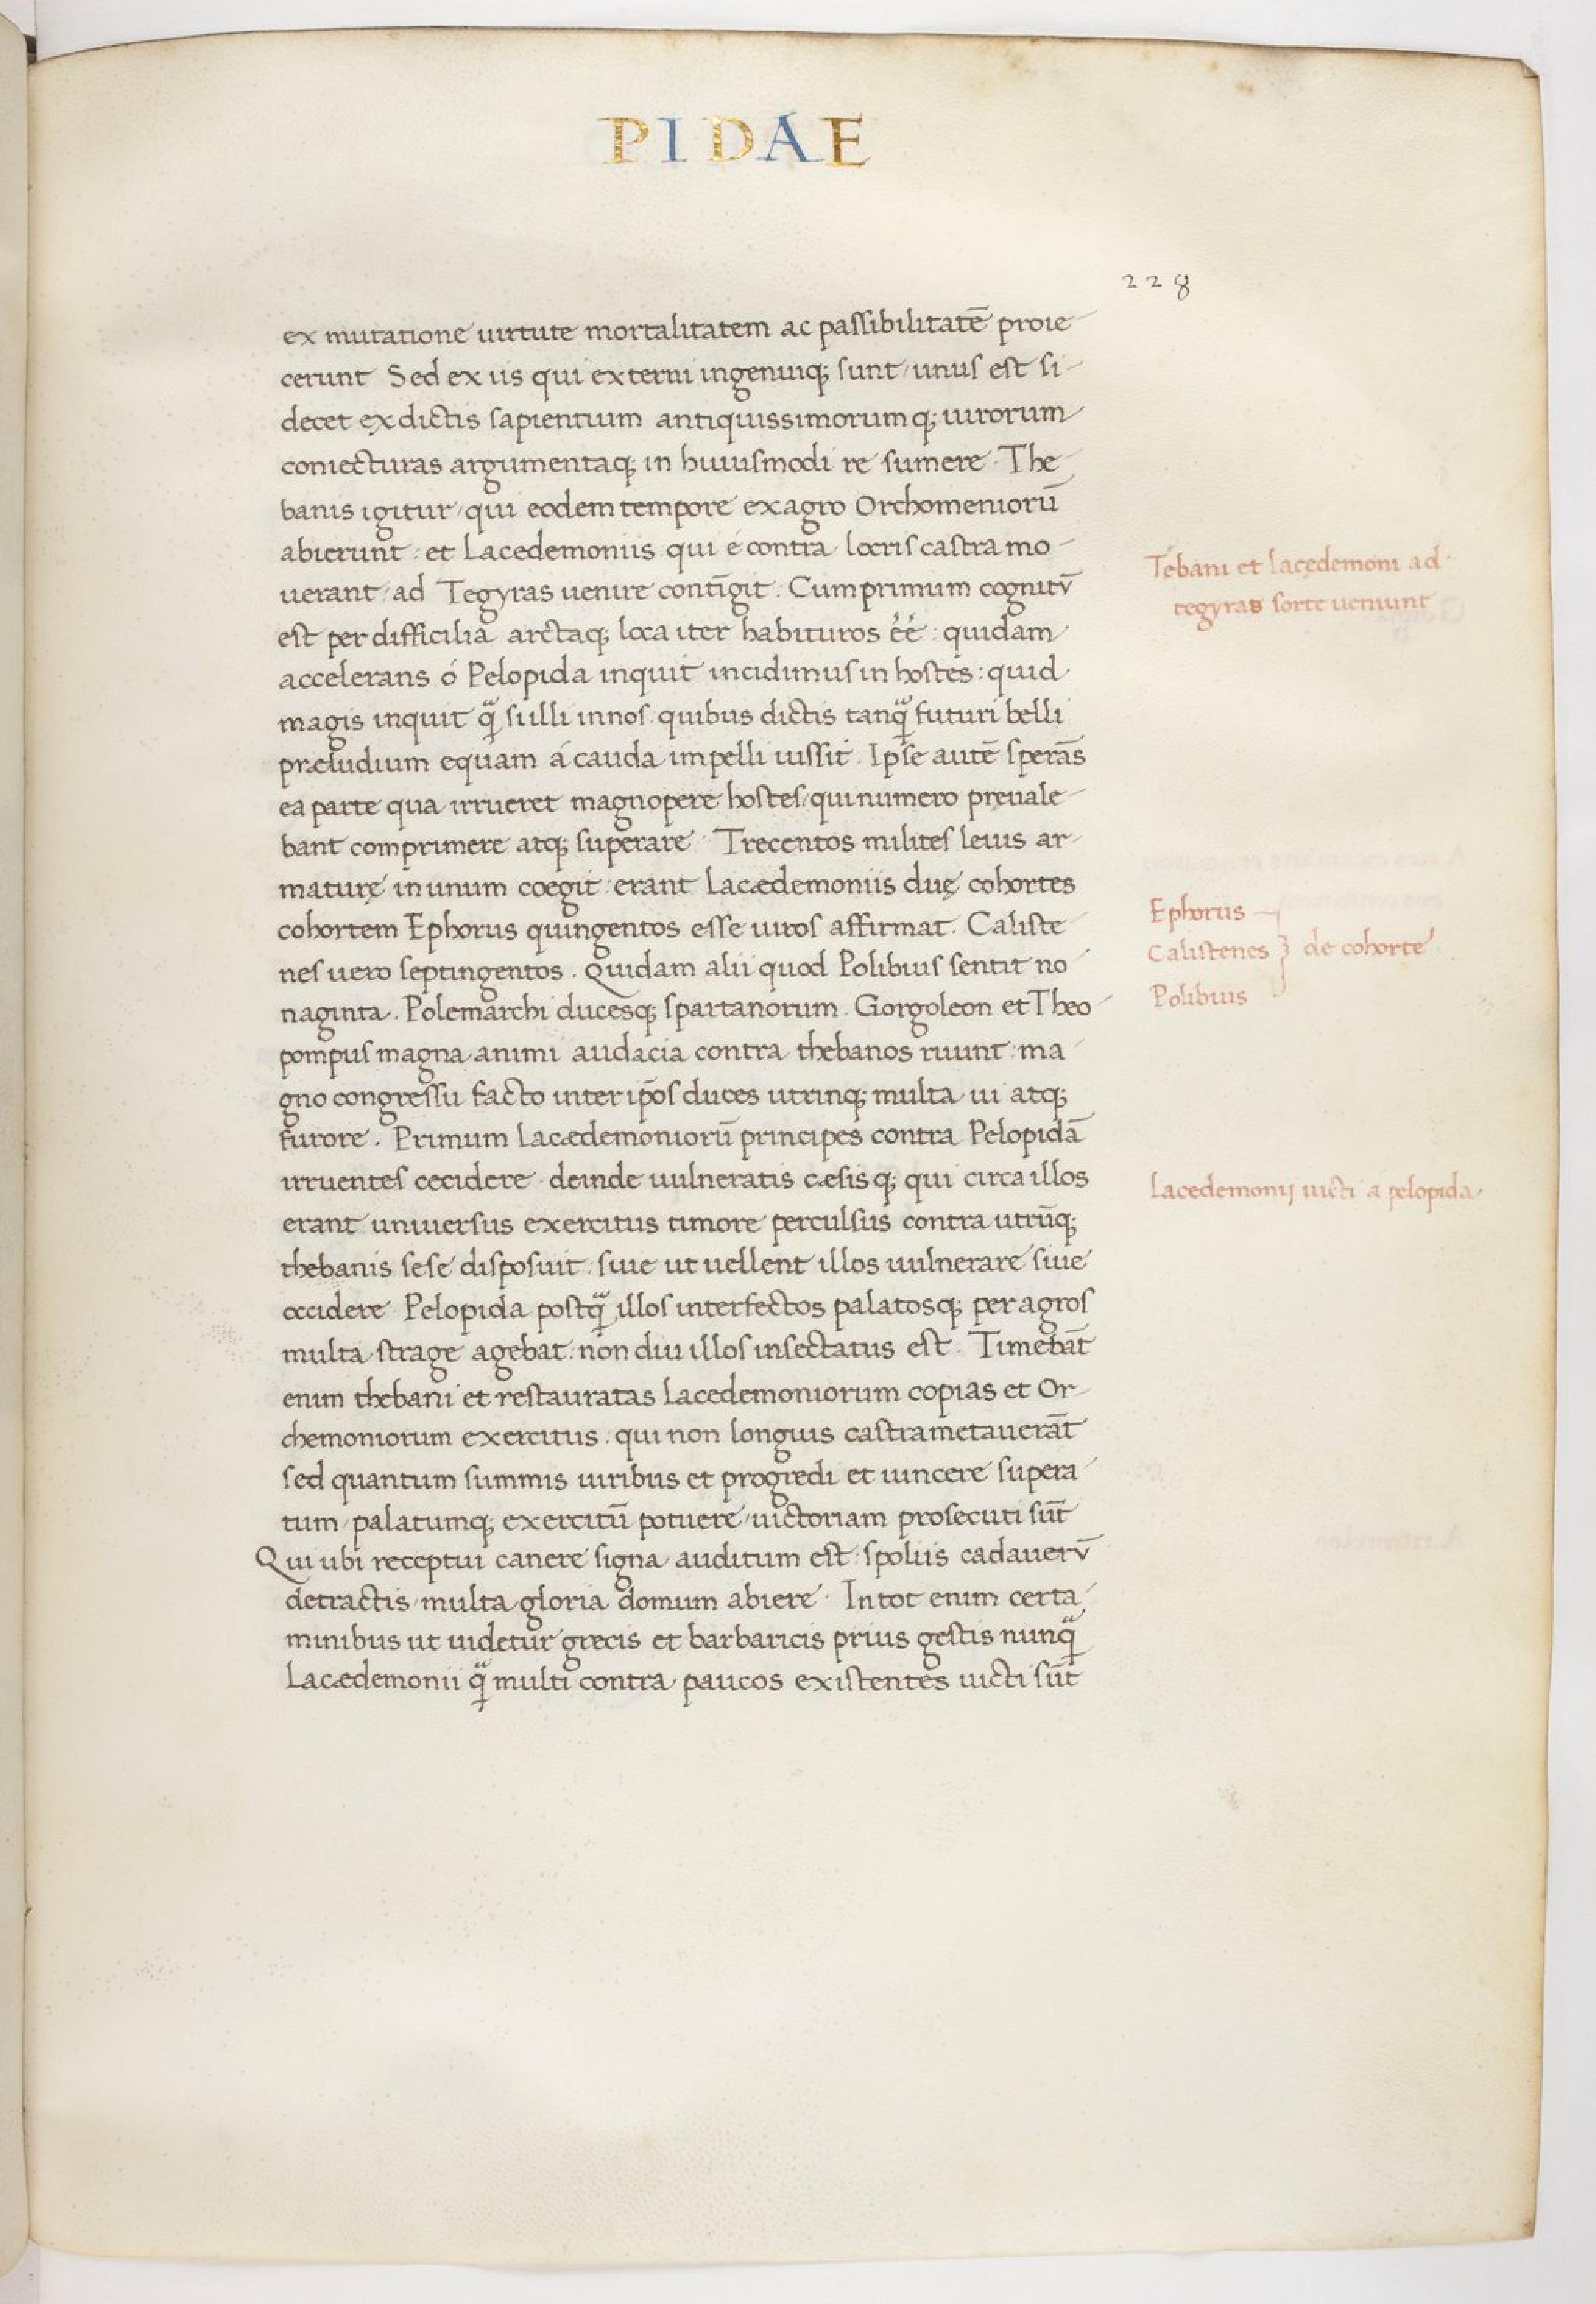 PIDAE
228
ex mutatione uirtute mortalitatem ac passibilitatē proie-
cerunt Sed ex iis qui externi ingenuiq; sunt / unus est si-
decet ex dictis sapientium antiquissimorumq; uirorum
coniecturas argumentaq; in huiusmodi re sumere. The-
banis igitur / qui eodem tempore ex agro Orchomeniorū
abierunt : et Lacedemoniis qui é contra locris castra mo-
uerant ad Tegyras uenire contīgit : Cum primum cognitū
est per difficilia arctaq; loca iter habituros éé : quidam
accelerans ó Pelopida inquit incidimus in hostes : quid
magis inquit q̃ si illi in nos quibus dictis tanq̃ futuri belli
præludium equam á cauda impelli iussit. Ipse autē sperās
ea parte qua irrueret magnopere hostes / qui numero pręuale-
bant comprimere atq; superare. Trecentos milites leuis ar-
maturę in unum coegit : erant Lacædemoniis duę cohortes
cohortem Ephorus quingentos esse uiros affirmat. Caliste-
nes uero septingentos. Quidam alii quod Polibius sentit no-
naginta. Polemarchi ducesq; spartanorum. Gorgoleon et Theo-
pompus magna animi audacia contra thebanos ruunt : ma-
gno congressu facto inter ip̄os duces utrinq; multa ui atq;
furore. Primum Lacædemoniorū principes contra Pelopidā
irruentes cecidere. deinde uulneratis cæsisq; qui circa illos
erant uniuersus exercitus timore perculsus contra utrūq;
thebanis sese disposuit : siue ut uellent illos uulnerare siue
occidere. Pelopida postq̃ illos interfectos palatosq; per agros
multa strage agebat : non diu illos insectatus est. Timebāt
enim thebani et restauratas Lacedemoniorum copias et Or-
chemoniorum exercitus : qui non longius castrametauerāt
sed quantum summis uiribus et progredi et uincere supera-
tum / palatumq; exercitū potuere / uictoriam prosecuti sūt
Qui ubi receptui canere signa auditum est : spoliis cadauerū
detractis / multa gloria domum abiere. In tot enim certa-
minibus ut uidetur grecis et barbaricis prius gestis nunq̃
Lacædemonii q̃ multi contra paucos existentes uicti sūt
Tebani et lacędemoni ad
tegyras sorte ueniunt
Ephorus
Calistenes } de cohorte
Polibius
Lacedemonij uicti a pelopida